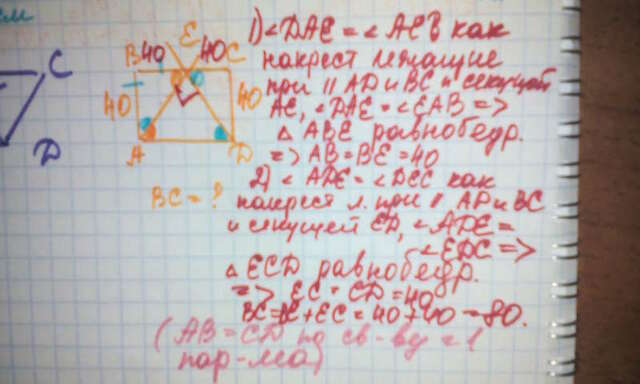 ем
C
D
E
B 40 40 C
40 40
A D
BC = ?
1) < DAE = < AEB как
накрест лежащие
при || AD и BC и секущей
AE, < DAE = < EAB =>
△ ABE равнобедр.
=> AB = BE = 40
2) < ADE = < DEC как
накрест л. при || AD и BC
и секущей ED, < ADE =
< EDC =>
△ ECD равнобедр.
=> EC = CD = 40
BC = BE + EC = 40 + 40 = 80.
(AB = CD по св-ву
пар-ма)